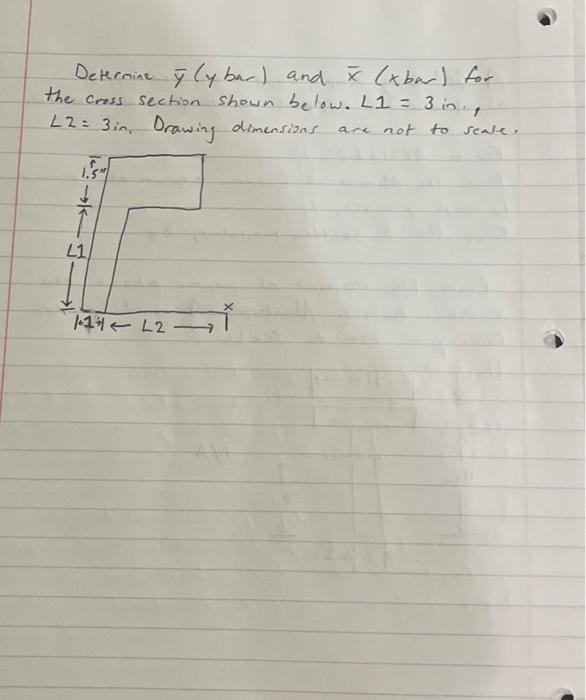 Determine ȳ (y bar) and x̄ (xbar) for
the cross section shown below. L1 = 3 in.,
L2 = 3 in. Drawing dimensions are not to scale.
1.5"
L1
x
1
L2